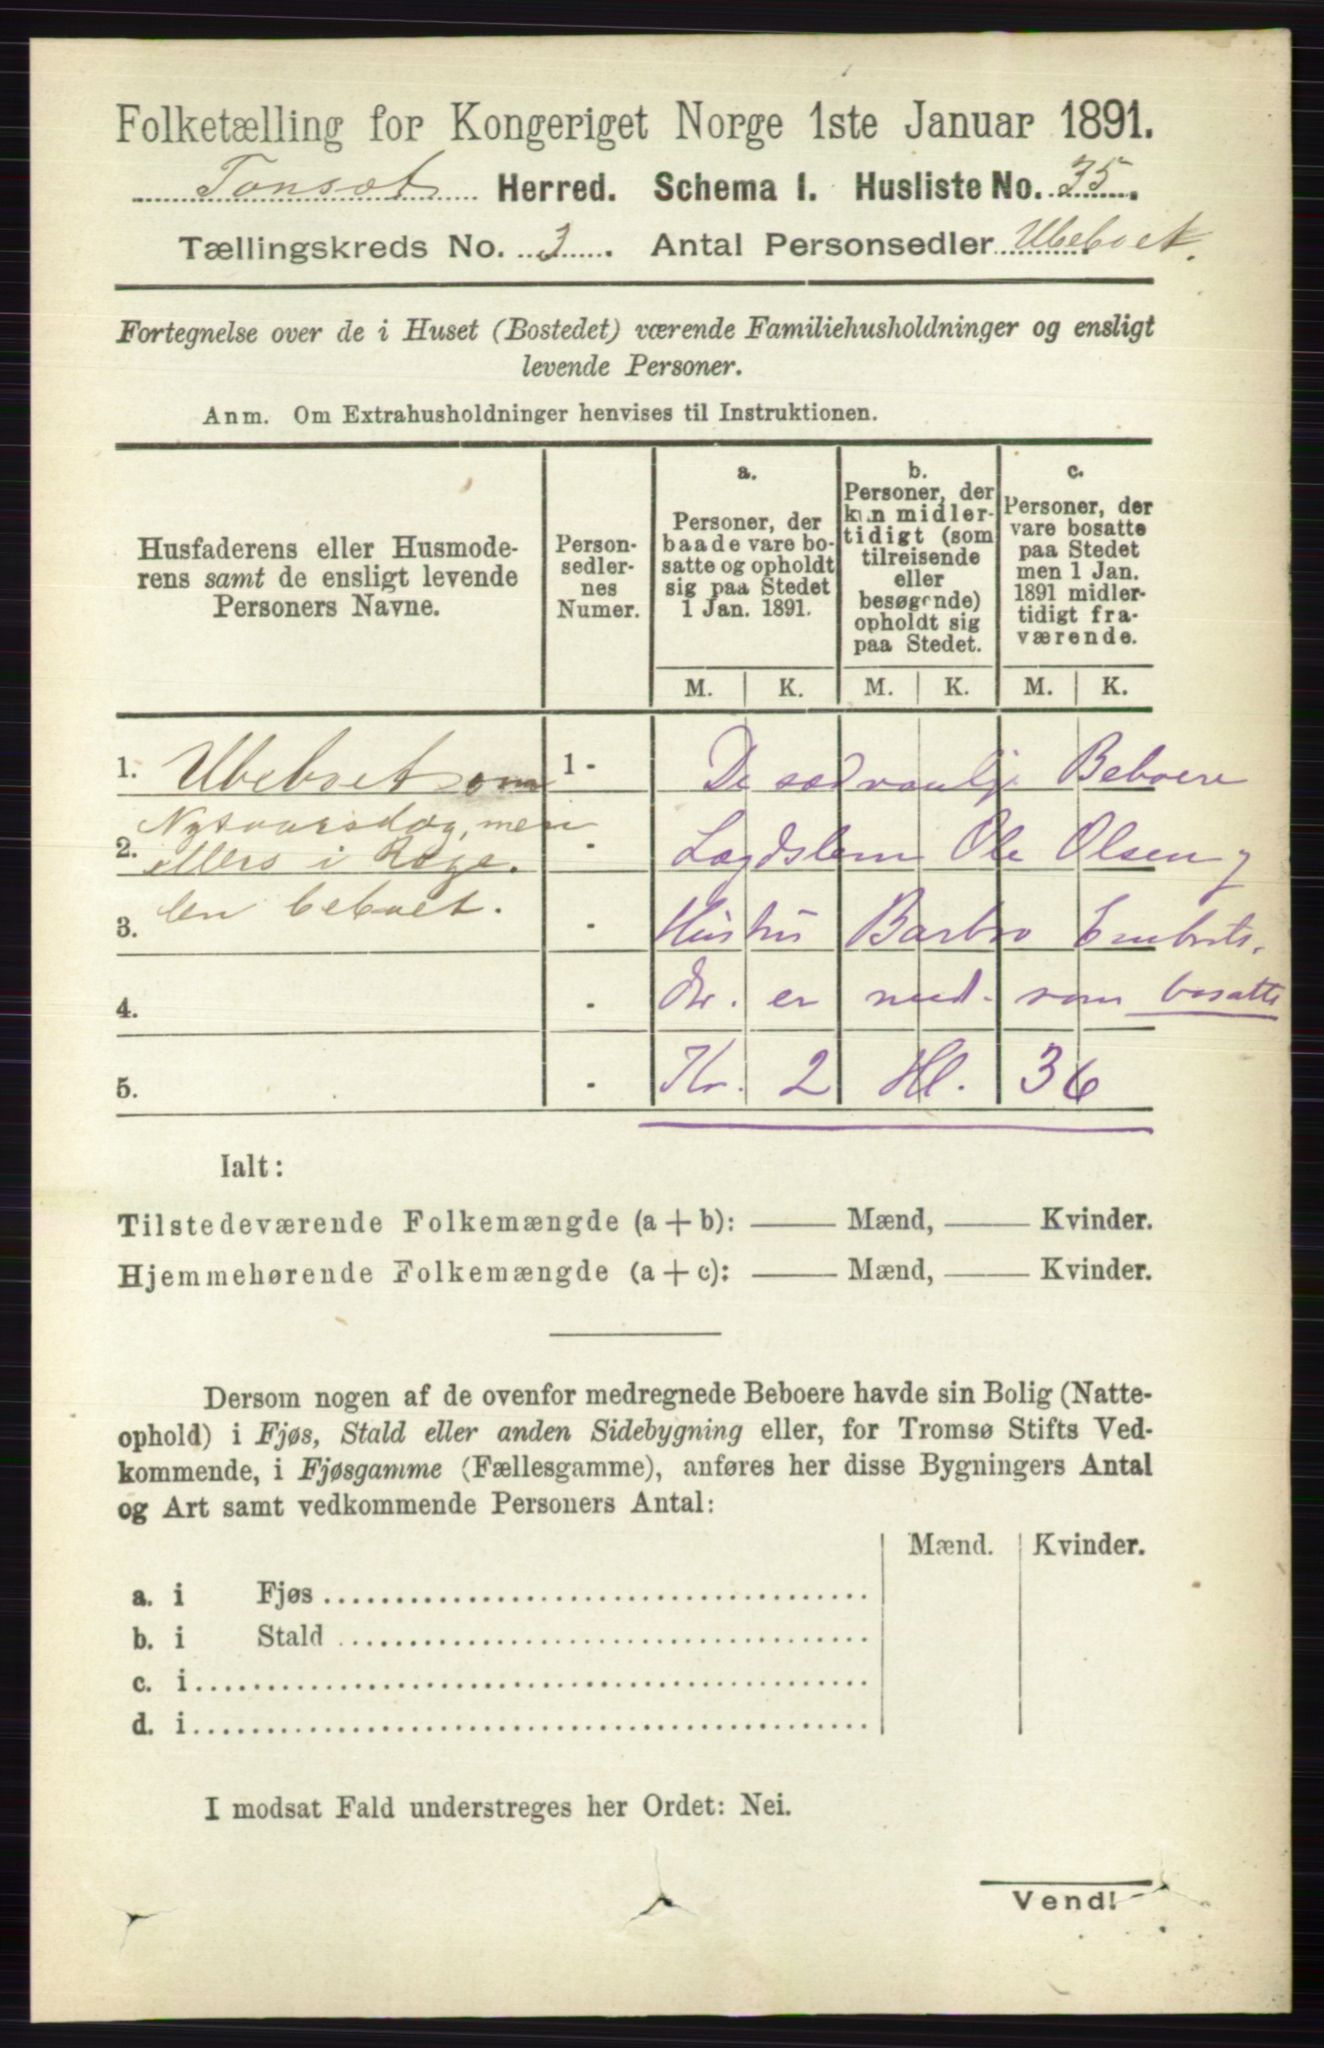 Folketælling for Kongeriget Norge 1ste Januar 1891.
Tønset Herred. Schema I. Husliste No. 35.
Tællingskreds No. 3. Antal Personsedler Ubeboet.
Fortegnelse over de i Huset (Bostedet) værende Familiehusholdninger og ensligt
levende Personer.
Anm. Om Extrahusholdninger henvises til Instruktionen.
Husfaderens eller Husmode-
rens samt de ensligt levende
Personers Navne.
Person-
sedler-
nes
Numer.
a.
Personer, der
baade vare bo-
satte og opholdt
sig paa Stedet
1 Jan. 1891.
b.
Personer, der
kun midler-
tidigt (som
tilreisende
eller
besøgende)
opholdt sig
paa Stedet.
c.
Personer, der
vare bosatte
paa Stedet
men 1 Jan.
1891 midler-
tidigt fra-
værende.
M. K. M. K. M. K.
1. Ubeboet om 1 - De sædvanlige Beboere
2. Nytaarsdag, men
ellers i Rege. - Lægdslem Ole Olsen
len beboet.
3. - Hustru Barbro Embrets.
4. - Dr. er med som bosatte
5. - Kr. 2 Hl. 36
Ialt:
Tilstedeværende Folkemængde (a + b): Mænd, Kvinder.
Hjemmehørende Folkemængde (a + c): Mænd, Kvinder.
Dersom nogen af de ovenfor medregnede Beboere havde sin Bolig (Natte-
ophold) i Fjøs, Stald eller anden Sidebygning eller, for Tromsø Stifts Ved-
kommende, i Fjøsgamme (Fællesgamme), anføres her disse Bygningers Antal
og Art samt vedkommende Personers Antal:
Mænd. Kvinder.
a. i Fjøs
b. i Stald
c. i
d. i
I modsat Fald understreges her Ordet: Nei.
Vend!